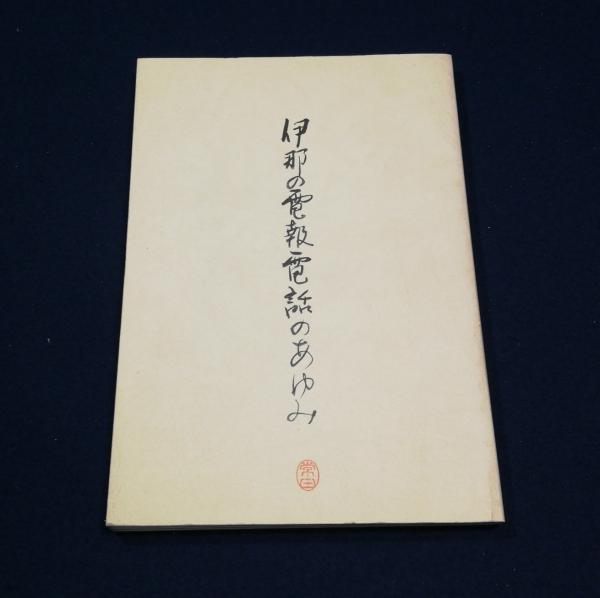 伊那の電報電話のあゆみ